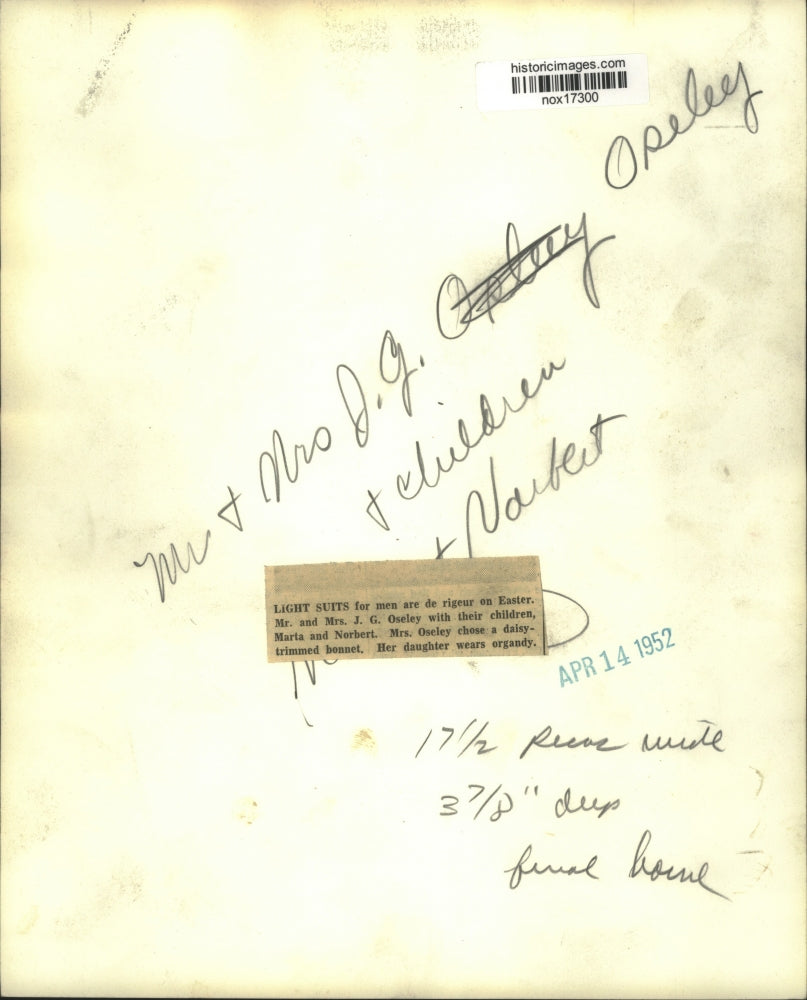 historicimages.com
nox17300
Oseley
Mr + Mrs J. G.
+ children
+ Norbert
LIGHT SUITS for men are de rigeur on Easter.
Mr. and Mrs. J. G. Oseley with their children,
Marta and Norbert. Mrs. Oseley chose a daisy-
trimmed bonnet. Her daughter wears organdy.
APR 14 1952
17 1/2 picas wide
3 7/8" deep
final home